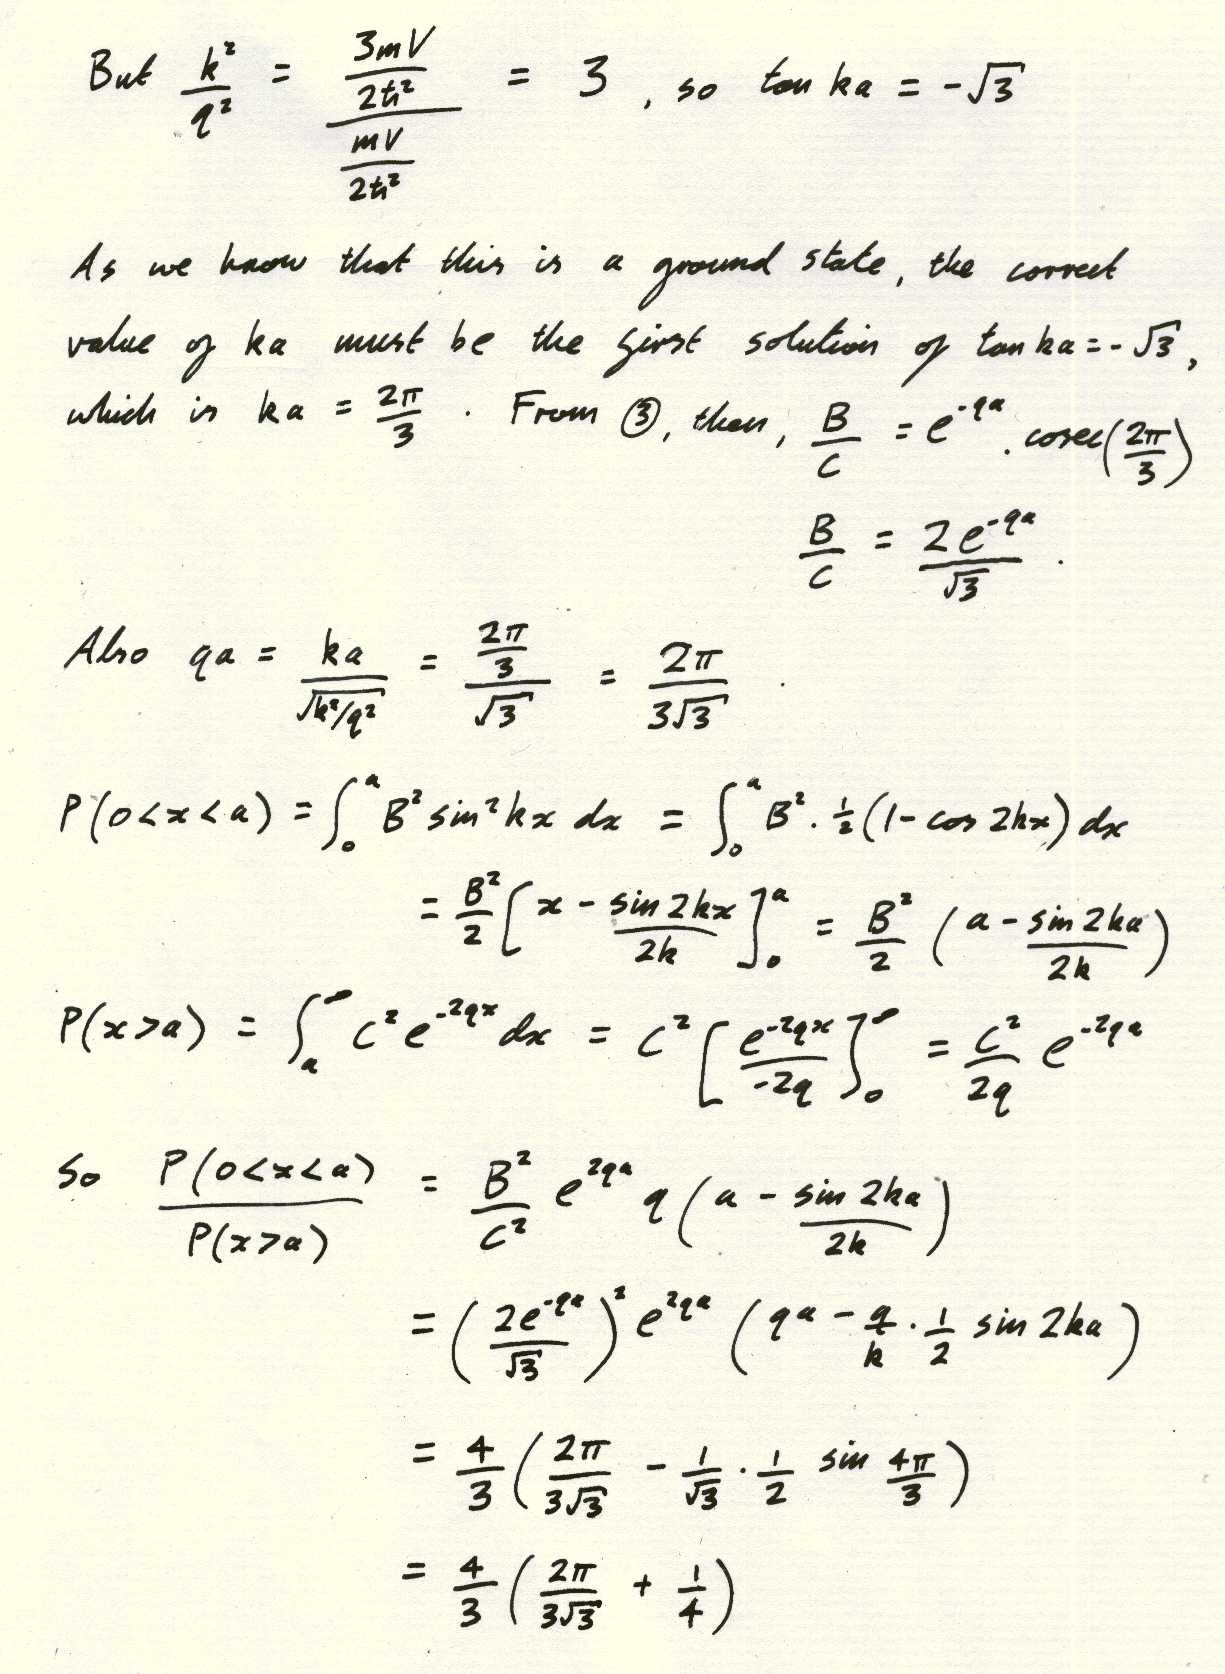 But k²/q² = (3mV/2ħ²)/(mV/2ħ²) = 3, so tan ka = -√3
As we know that this is a ground state, the correct
value of ka must be the first solution of tan ka = -√3,
which is ka = 2π/3. From ③, then, B/C = e^{-qa}. cosec(2π/3)
B/C = 2e^{-qa}/√3.
Also qa = ka/√(k²/q²) = (2π/3)/√3 = 2π/(3√3).
P(0<x<a) = ∫₀^a B² sin² kx dx = ∫₀^a B². ½(1 - cos 2kx) dx
= B²/2 [x - sin 2kx/2k]₀^a = B²/2 (a - sin 2ka/2k)
P(x>a) = ∫_a^∞ C² e^{-2qx} dx = C² [e^{-2qx}/-2q]₀^∞ = C²/2q e^{-2qa}
So P(0<x<a)/P(x>a) = B²/C² e^{2qa} q (a - sin 2ka/2k)
= (2e^{-qa}/√3)² e^{2qa} (qa - q/k · 1/2 sin 2ka)
= 4/3 (2π/(3√3) - 1/√3 · 1/2 sin 4π/3)
= 4/3 (2π/(3√3) + 1/4)